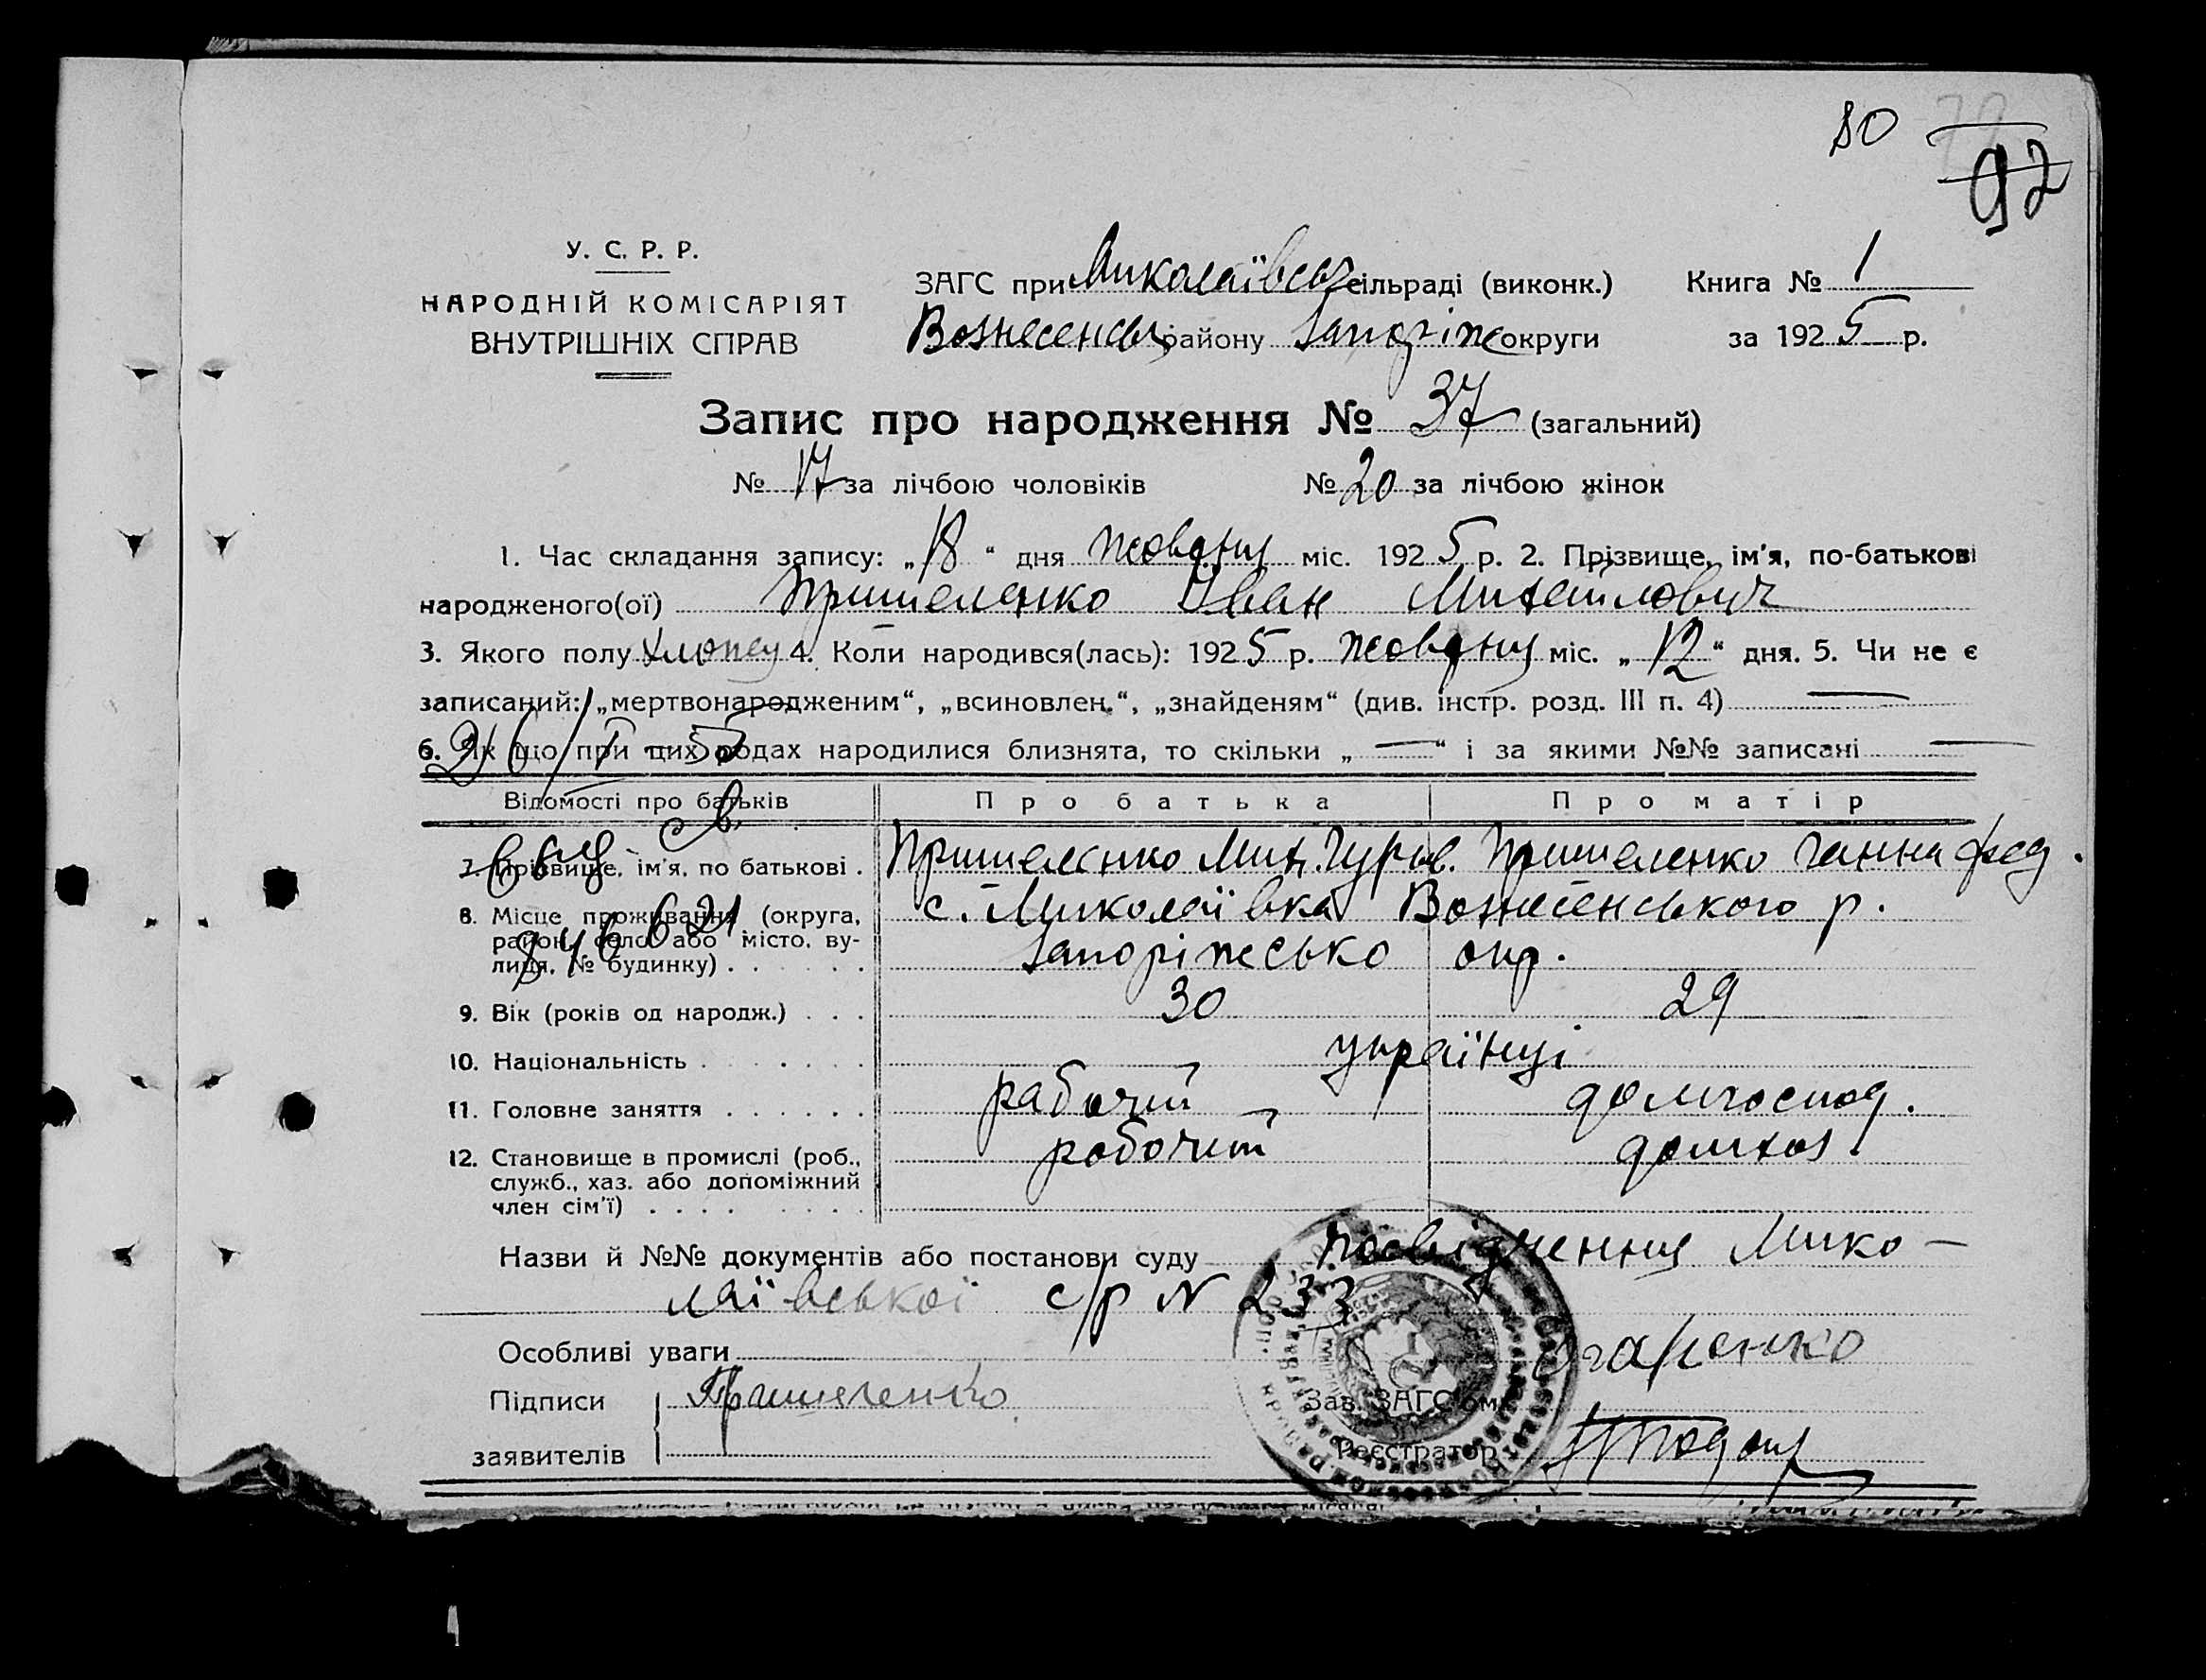 80 92
У. С. Р. Р.
НАРОДНІЙ КОМІСАРІЯТ
ВНУТРІШНІХ СПРАВ
ЗАГС при Миколаївськ сільраді (виконк.) Книга № 1
Вознесенськ району Запоріж округи за 1925 р.
Запис про народження № 37 (загальний)
№ 17 за лічбою чоловіків № 20 за лічбою жінок
1. Час складання запису: „18“ дня жовтня міс. 1925 р. 2. Прізвище, ім'я, по-батькові
народженого(ої) Пришеленко Іван Михайлович
3. Якого полу хлопец 4. Коли народився(лась): 1925 р. жовтня міс. „12“ дня. 5. Чи не є
записаний: „мертвонародженим“, „всиновлен.“, „знайденям“ (див. інстр. розд. III п. 4) —
6. Як що при цих родах народилися близнята, то скільки „—“ і за якими №№ записані —
Відомості про батьків Про батька Про матір
7. Прізвище, ім'я, по батькові . Пришеленко Мих. Гурьев. Пришеленко Ганна Фед.
8. Місце проживання (округа, район, село або місто, ву-
лиця, № будинку) . . . . . .
с. Миколаївка Вознесенського р.
Запоріжсько окр.
9. Вік (років од народж.) . . . 30 29
10. Національність . . . . . . . українці
11. Головне заняття . . . . . . рабочий домгоспод.
12. Становище в промислі (роб.,
служб., хаз. або допоміжний
член сім'ї) . . . . . . . .
робочий домхоз.
Назви й №№ документів або постанови суду посвідчення Мико-
лаївської с/р N 233
Особливі уваги
Підписи Пришеленко Зав. ЗАГС'ом
заявителів Реєстратор